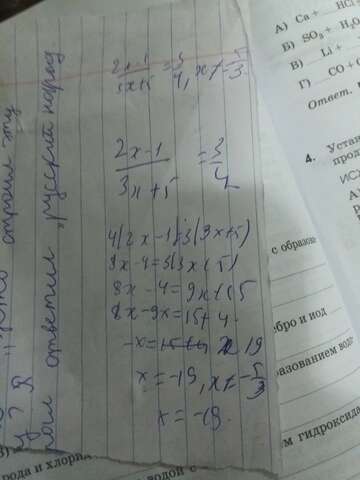 (2x-1)/(3x+5) = 3/4, x ≠ -5/3
(2x-1)/(3x+5) = 3/4
4(2x-1)=3(3x+5)
8x-4=3(3x+5)
8x-4=9x+15
8x-9x=15+4
-x= 19
x=-19, x≠-5/3
x=-19.
строил эту
ответил "русский народ
А) Ca +
HCl
Б) SO₃ + H₂O
В) Li +
Г) CO +
Ответ.
4. Устан
прод
ИСХ
А)
с образов
бро и иод
разованием водо
м гидроксида
рода и хлорид
водой с